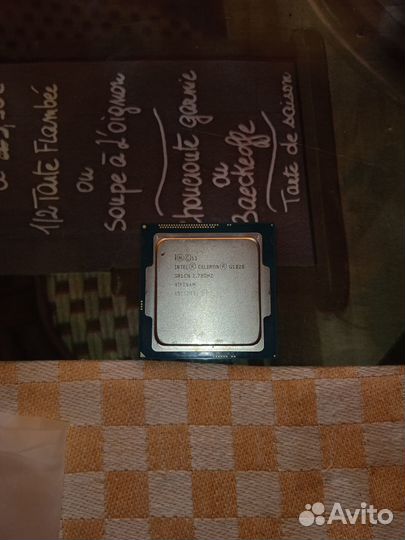 1/2 Tarte Flambée
ou
Soupe à L'oignon
Choucroute garnie
ou
Baeckeoffe
Tarte de saison
INTEL® CELERON® G1820
SR1CN 2.70GHZ
Avito